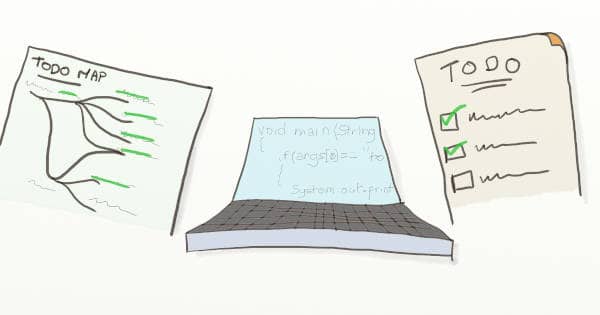 TODO MAP
void main(String
{
if(args[0]==
{
System.out.print
TODO